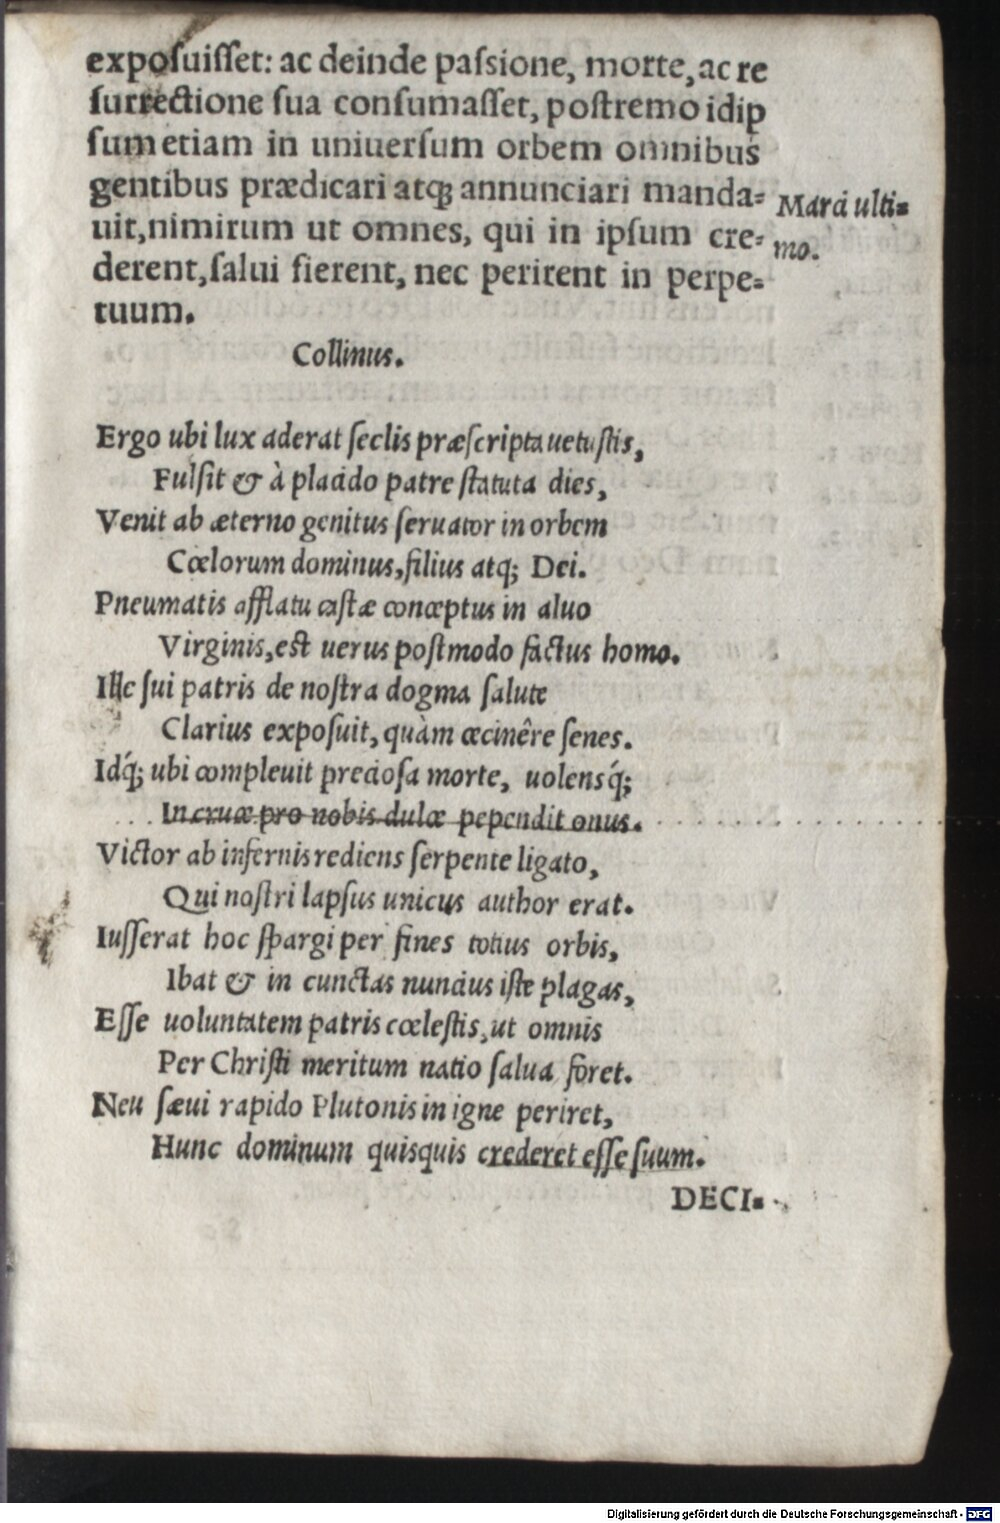 expoſuiſſet: ac deinde paſsione, morte, ac re
ſurrectione ſua conſumaſſet, poſtremo idip
ſum etiam in uniuerſum orbem omnibus
gentibus prædicari atq; annunciari manda-
uit, nimirum ut omnes, qui in ipſum cre-
derent, ſalui fierent, nec perirent in perpe-
tuum.
Marci ulti-
mo.
Collinus.
Ergo ubi lux aderat ſeclis præſcripta uetuſtis,
Fulſit & à placido patre ſtatuta dies,
Venit ab æterno genitus ſeruator in orbem
Cœlorum dominus, filius atq; Dei.
Pneumatis afflatu caſtæ conceptus in aluo
Virginis, eſt uerus poſtmodo factus homo.
Ille ſui patris de noſtra dogma ſalute
Clarius expoſuit, quàm cecinêre ſenes.
Idq́; ubi compleuit precioſa morte, uolensq́;
In cruce pro nobis dulce pependit onus.
Victor ab infernis rediens ſerpente ligato,
Qui noſtri lapſus unicus author erat.
Iuſſerat hoc ſpargi per fines totius orbis,
Ibat & in cunctas nuncius iſte plagas,
Eſſe uoluntatem patris cœleſtis, ut omnis
Per Chriſti meritum natio ſalua foret.
Neu ſæui rapido Plutonis in igne periret,
Hunc dominum quisquis crederet eſſe ſuum.
DECI-
Digitalisierung gefördert durch die Deutsche Forschungsgemeinschaft - DFG